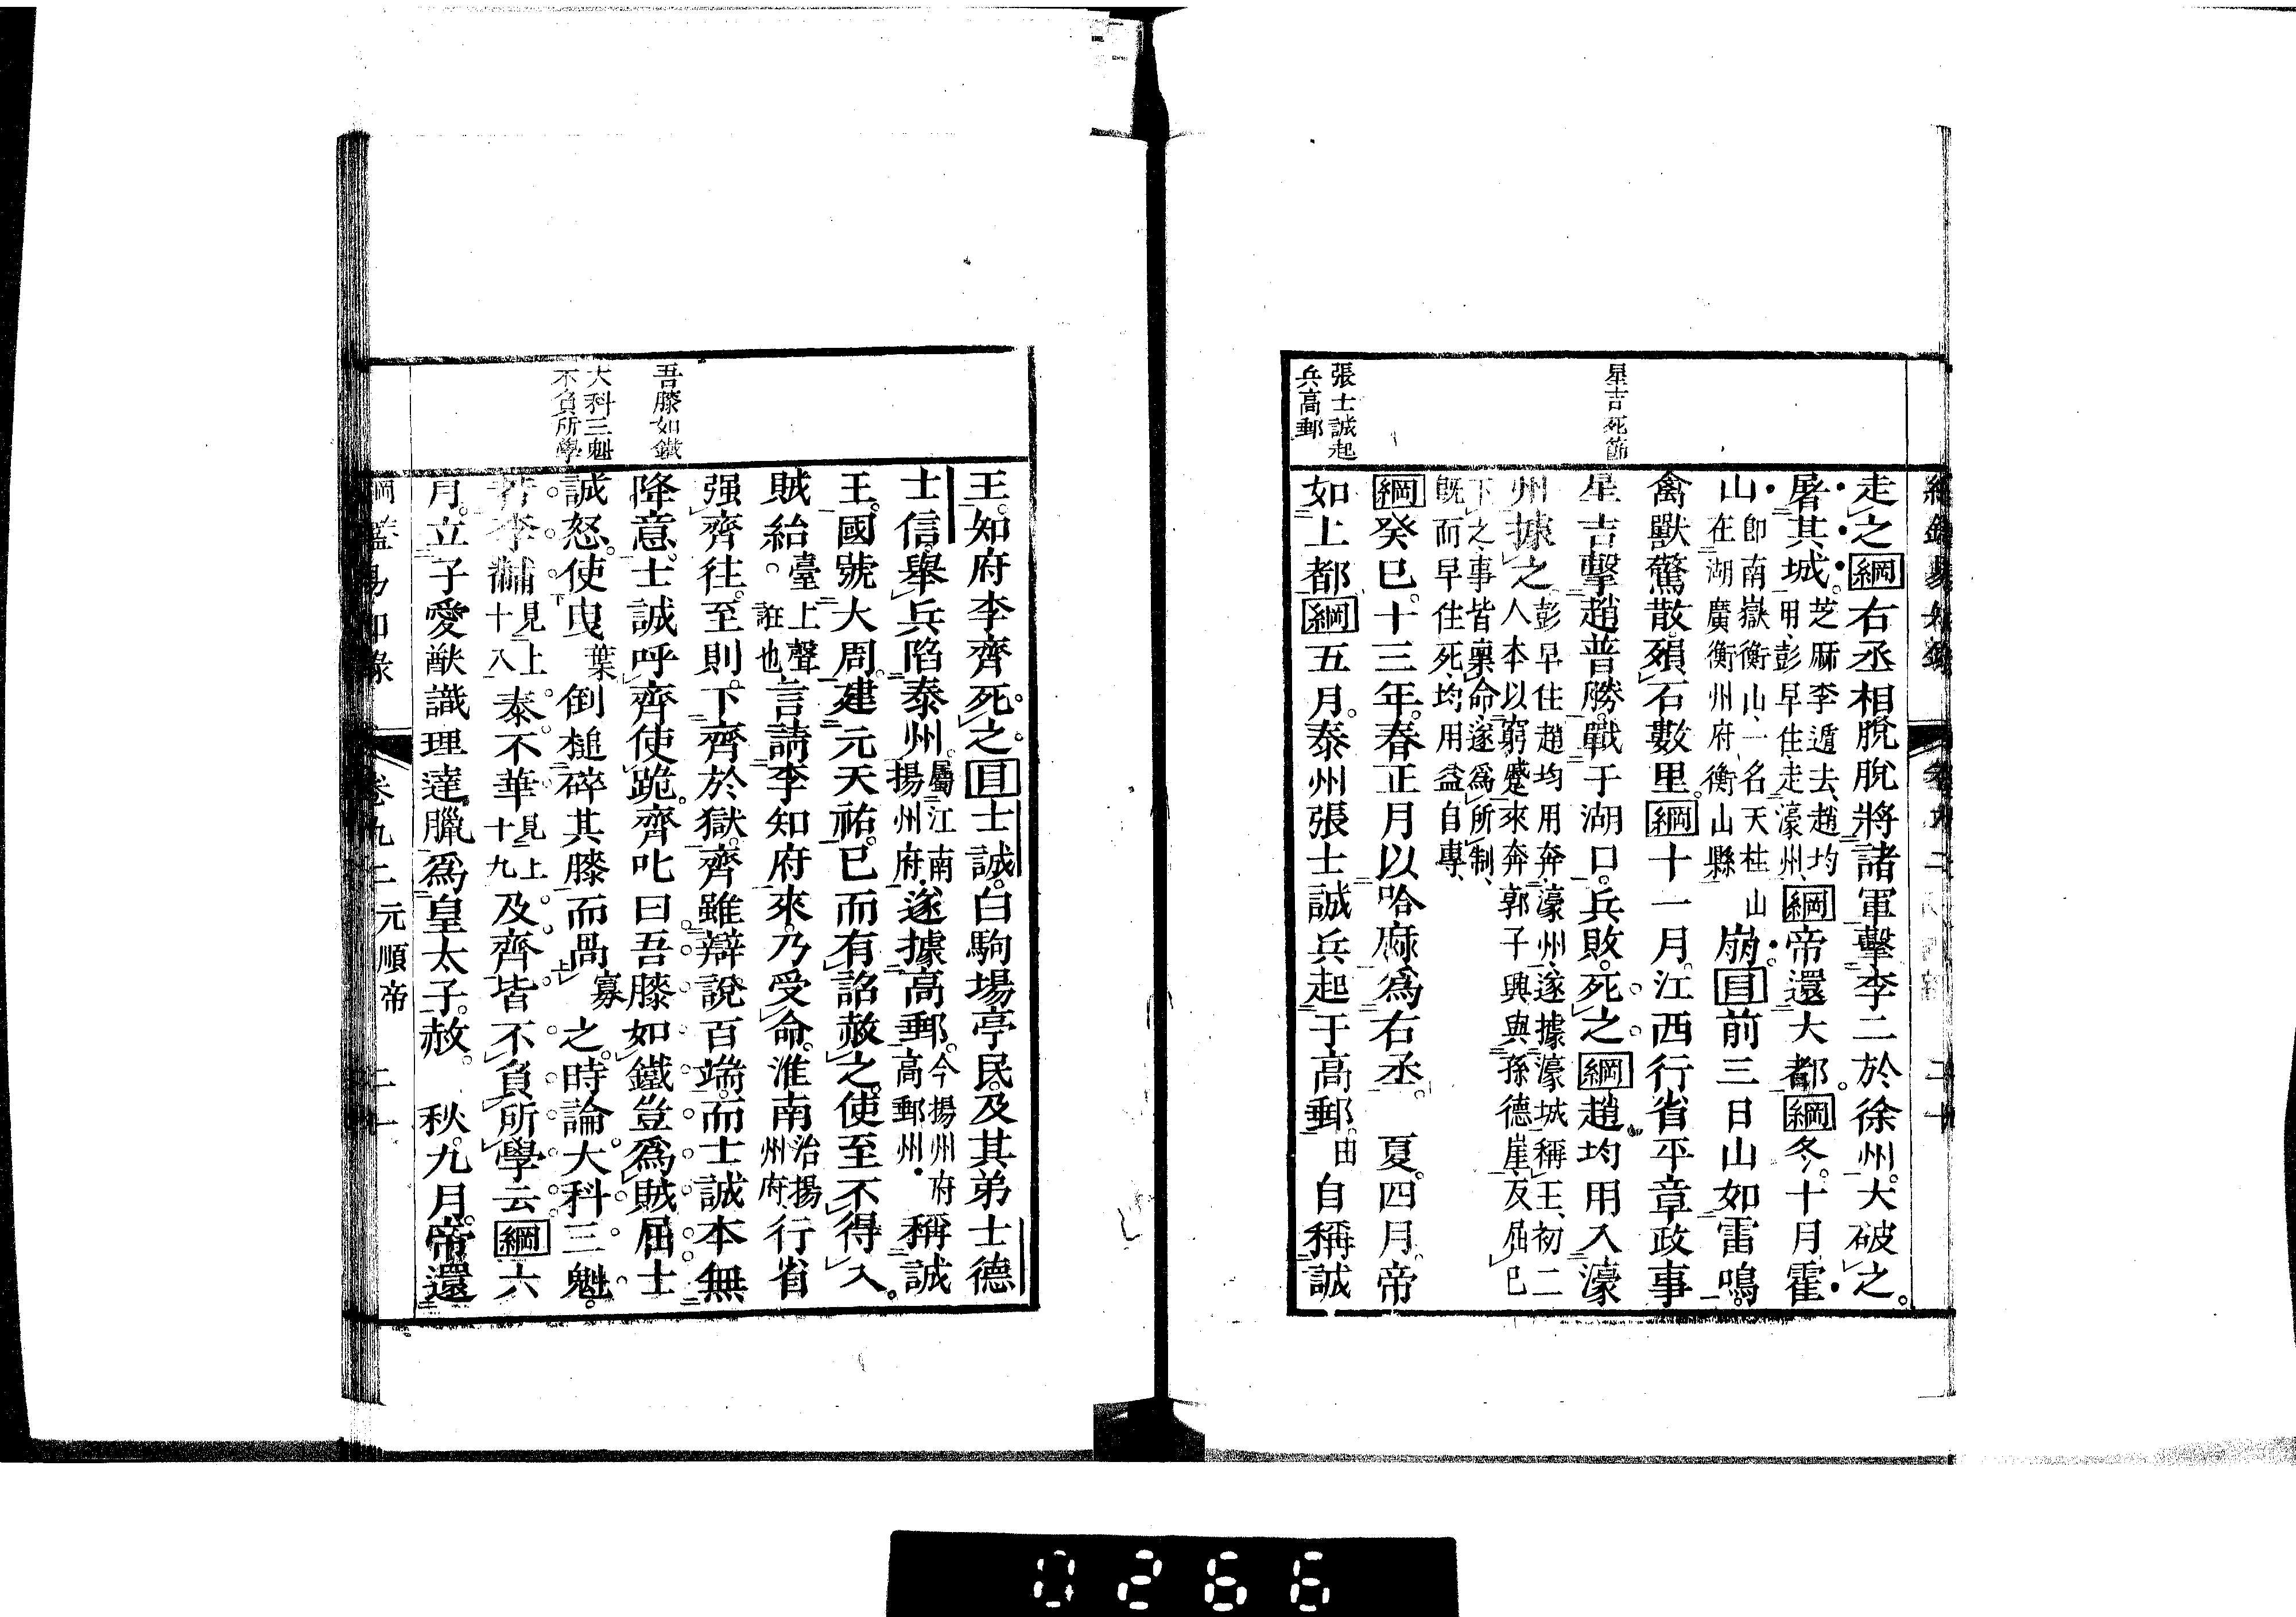 星吉死節
張士誠起
兵高郵
走之綱右丞相脫脫將諸軍擊李二於徐州大破之
屠其城芝麻李遁去趙均用彭早住走濠州綱帝還大都綱冬十月霍
山卽南嶽衡山一名天柱山在湖廣衡州府衡山縣崩目前三日山如雷鳴
禽獸驚散殞石數里綱十一月江西行省平章政事
星吉擊趙普勝戰于湖口兵敗死之綱趙均用入濠
州據之彭早住趙均用奔濠州遂據濠城稱王初二人本以窮蹙來奔郭子興與孫德崖反屈已
下之事皆稟命遂爲所制
旣而早住死均用益自專
綱癸巳十三年春正月以哈麻爲右丞 夏四月帝
如上都綱五月泰州張士誠兵起于高郵由自稱誠
吾膝如鐵
大科三魁
不負所學
王知府李齊死之目士誠白駒場亭民及其弟士德
士信舉兵陷泰州屬江南揚州府遂據高郵今揚州府高郵州稱誠
王國號大周建元天祐已而有詔赦之使至不得入
賊紿臺上聲誑也言請李知府來乃受命淮南治揚州府行省
强齊往至則下齊於獄齊雖辯說百端而士誠本無
降意士誠呼齊使跪齊叱曰吾膝如鐵豈爲賊屈士
誠怒使曳葉倒槌碎其膝而咼寡之時論大科三魁
若李黼見上十八泰不華見上十九及齊皆不負所學云綱六
月立子愛猷識理達臘爲皇太子赦 秋九月帝還
綱鑑易知錄 卷九二 元順帝 二十一